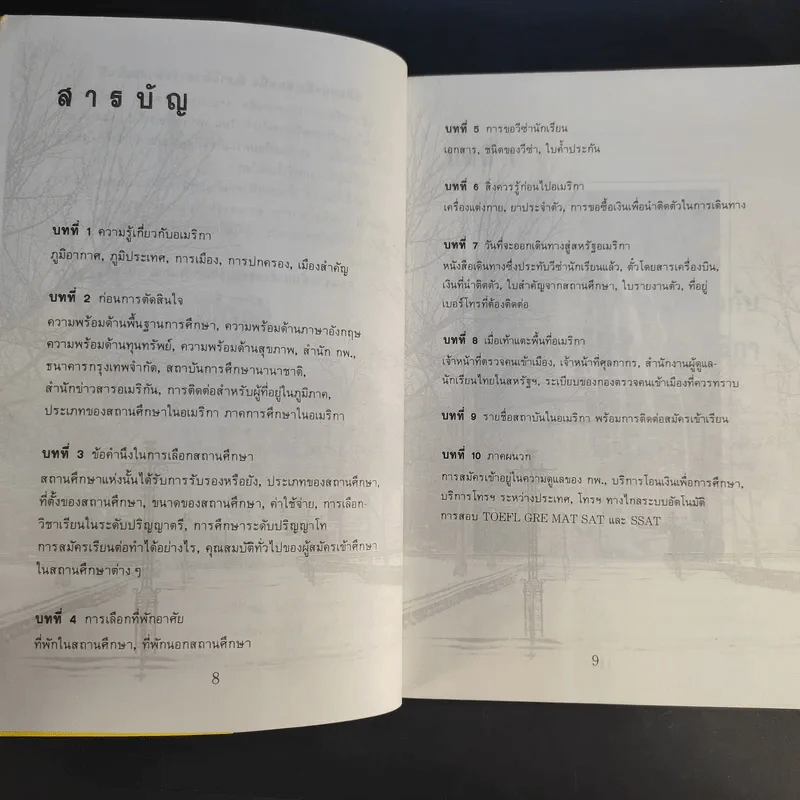 สารบัญ
บทที่ 1 ความรู้เกี่ยวกับอเมริกา
ภูมิอากาศ, ภูมิประเทศ, การเมือง, การปกครอง, เมืองสำคัญ
บทที่ 2 ก่อนการตัดสินใจ
ความพร้อมด้านพื้นฐานการศึกษา, ความพร้อมด้านภาษาอังกฤษ
ความพร้อมด้านทุนทรัพย์, ความพร้อมด้านสุขภาพ, สำนัก กพ.,
ธนาคารกรุงเทพจำกัด, สถาบันการศึกษานานาชาติ,
สำนักข่าวสารอเมริกัน, การติดต่อสำหรับผู้ที่อยู่ในภูมิภาค,
ประเภทของสถานศึกษาในอเมริกา ภาคการศึกษาในอเมริกา
บทที่ 3 ข้อคำนึงในการเลือกสถานศึกษา
สถานศึกษาแห่งนั้นได้รับการรับรองหรือยัง, ประเภทของสถานศึกษา,
ที่ตั้งของสถานศึกษา, ขนาดของสถานศึกษา, ค่าใช้จ่าย, การเลือก-
วิชาเรียนในระดับปริญญาตรี, การศึกษาระดับปริญญาโท
การสมัครเรียนต่อทำได้อย่างไร, คุณสมบัติทั่วไปของผู้สมัครเข้าศึกษา
ในสถานศึกษาต่าง ๆ
บทที่ 4 การเลือกที่พักอาศัย
ที่พักในสถานศึกษา, ที่พักนอกสถานศึกษา
8
บทที่ 5 การขอวีซ่านักเรียน
เอกสาร, ชนิดของวีซ่า, ใบค้ำประกัน
บทที่ 6 สิ่งควรรู้ก่อนไปอเมริกา
เครื่องแต่งกาย, ยาประจำตัว, การขอซื้อเงินเพื่อนำติดตัวในการเดินทาง
บทที่ 7 วันที่จะออกเดินทางสู่สหรัฐอเมริกา
หนังสือเดินทางซึ่งประทับวีซ่านักเรียนแล้ว, ตั๋วโดยสารเครื่องบิน,
เงินที่นำติดตัว, ใบสำคัญจากสถานศึกษา, ใบรายงานตัว, ที่อยู่
เบอร์โทรที่ต้องติดต่อ
บทที่ 8 เมื่อเท้าแตะพื้นที่อเมริกา
เจ้าหน้าที่ตรวจคนเข้าเมือง, เจ้าหน้าที่ศุลกากร, สำนักงานผู้ดูแล-
นักเรียนไทยในสหรัฐฯ, ระเบียบของกองตรวจคนเข้าเมืองที่ควรทราบ
บทที่ 9 รายชื่อสถาบันในอเมริกา พร้อมการติดต่อสมัครเข้าเรียน
บทที่ 10 ภาคผนวก
การสมัครเข้าอยู่ในความดูแลของ กพ., บริการโอนเงินเพื่อการศึกษา,
บริการโทรฯ ระหว่างประเทศ, โทรฯ ทางไกลระบบอัตโนมัติ
การสอบ TOEFL GRE MAT SAT และ SSAT
9